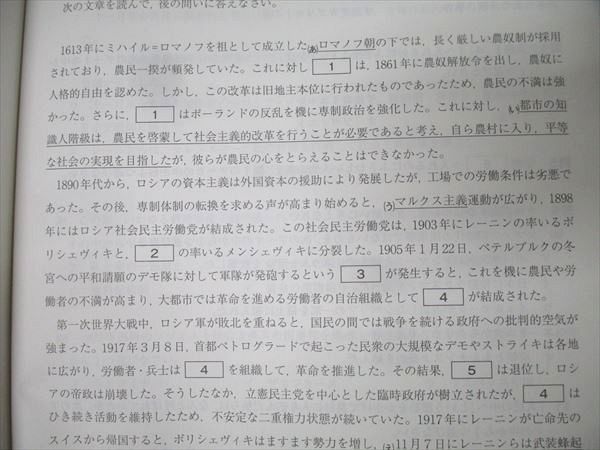 次の文章を読んで，後の問いに答えなさい。
1613年にミハイル＝ロマノフを祖として成立した(あ)ロマノフ朝の下では，長く厳しい農奴制が採用
されており，農民一揆が頻発していた。これに対し 1 は，1861年に農奴解放令を出し，農奴に
人格的自由を認めた。しかし，この改革は旧地主本位に行われたものであったため，農民の不満は強
かった。さらに， 1 はポーランドの反乱を機に専制政治を強化した。これに対し，(い)都市の知
識人階級は，農民を啓蒙して社会主義的改革を行うことが必要であると考え，自ら農村に入り，平等
な社会の実現を目指したが，彼らが農民の心をとらえることはできなかった。
1890年代から，ロシアの資本主義は外国資本の援助により発展したが，工場での労働条件は劣悪で
あった。その後，専制体制の転換を求める声が高まり始めると，(う)マルクス主義運動が広がり，1898
年にはロシア社会民主労働党が結成された。この社会民主労働党は，1903年にレーニンの率いるボ
リシェヴィキと， 2 の率いるメンシェヴィキに分裂した。1905年1月22日，ペテルブルクの冬
宮への平和請願のデモ隊に対して軍隊が発砲するという 3 が発生すると，これを機に農民や労
働者の不満が高まり，大都市では革命を進める労働者の自治組織として 4 が結成された。
第一次世界大戦中，ロシア軍が敗北を重ねると，国民の間では戦争を続ける政府への批判的空気が
強まった。1917年3月8日，首都ペトログラードで起こった民衆の大規模なデモやストライキは各地
に広がり，労働者・兵士は 4 を組織して，革命を推進した。その結果， 5 は退位し，ロシ
アの帝政は崩壊した。そうしたなか，立憲民主党を中心とした臨時政府が樹立されたが， 4 は
ひき続き活動を維持したため，不安定な二重権力状態が続いていた。1917年にレーニンが亡命先の
スイスから帰国すると，ボリシェヴィキはますます勢力を増し，(え)11月7日にレーニンらは武装蜂起